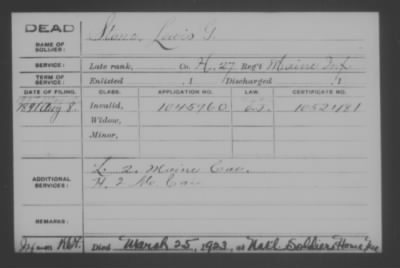 DEAD
NAME OF SOLDIER:
Stone, Lewis G.
SERVICE:
Late rank, Co. H, 27 Reg't Maine Inf.
TERM OF SERVICE:
Enlisted , 1 Discharged , 1
DATE OF FILING. CLASS. APPLICATION NO. LAW. CERTIFICATE NO.
1891 Aug 8. Invalid, 1045960 1052481
Widow,
Minor,
ADDITIONAL SERVICES:
L. 2. Maine Cav.
H. 2 Me Cav
REMARKS:
Died March 25, 1923, at Nat'l Soldiers Home Me